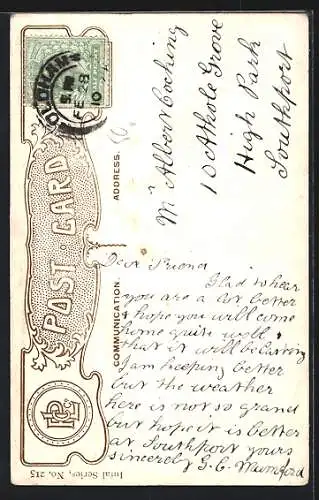 POST CARD
ADDRESS.
COMMUNICATION.
Initial Series, No. 215
OLDHAM
FE 28
10
Mr Albert Cocking
10 Athole Grove
High Park
Southport
Dear Friend
Glad to hear
you are a bit better
& hope you will come
home quite well
that it will be lasting
I am keeping better
but the weather
here is not so grand
but hope it is better
at Southport yours
sincerely J. E. Mumford